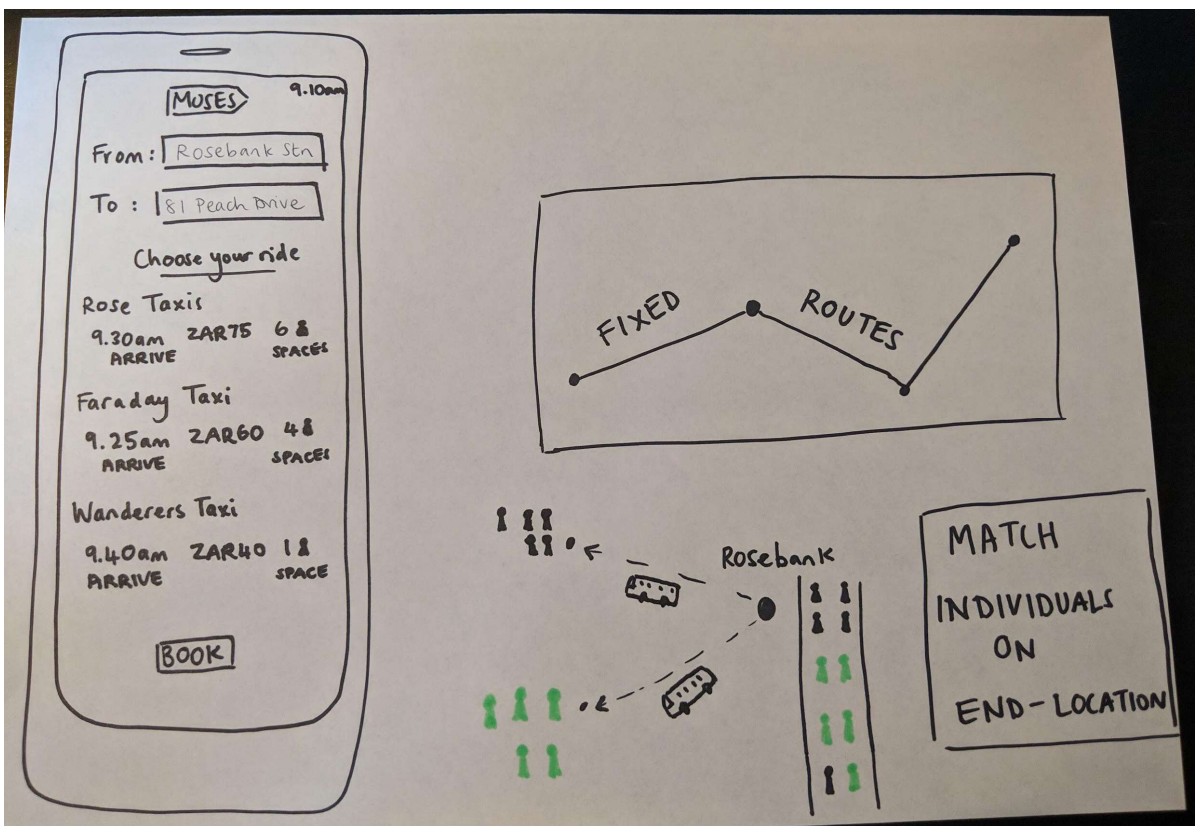 MUSES
9.10am
From: Rosebank Stn
To : 81 Peach Drive
Choose your ride
Rose Taxis
9.30am ZAR75 6
ARRIVE SPACES
Faraday Taxi
9.25am ZAR60 4
ARRIVE SPACES
Wanderers Taxi
9.40am ZAR40 1
ARRIVE SPACE
BOOK
FIXED ROUTES
Rosebank
MATCH
INDIVIDUALS
ON
END-LOCATION